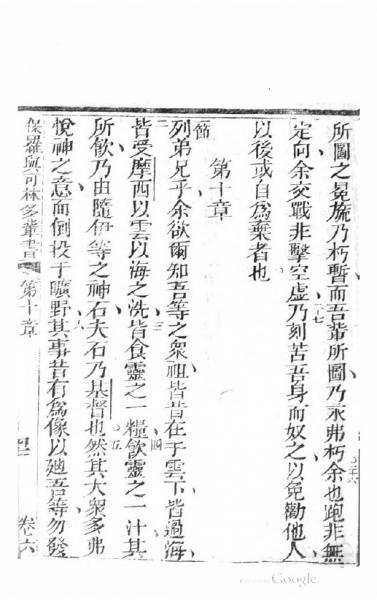 所圖之冕旒乃朽暫而吾輩所圖乃永弗朽余也跑非無
定向余交戰非擊空虛乃刻苦吾身而奴之以免勸他人
以後或自爲棄者也
第十章
節
列弟兄乎余欲爾知吾等之衆祖皆昔在于雲下皆過海
皆受摩西以雲以海之洗皆食靈之一糧飲靈之一汁其
所飲乃由隨伊等之神石夫石乃基督也然其大衆多弗
悅神之意而倒投于曠野其事昔有爲像以廸吾等勿發
保羅與可林多輩書 第十章 卷六
二十六
二十七
二
三
四
五
六
Google